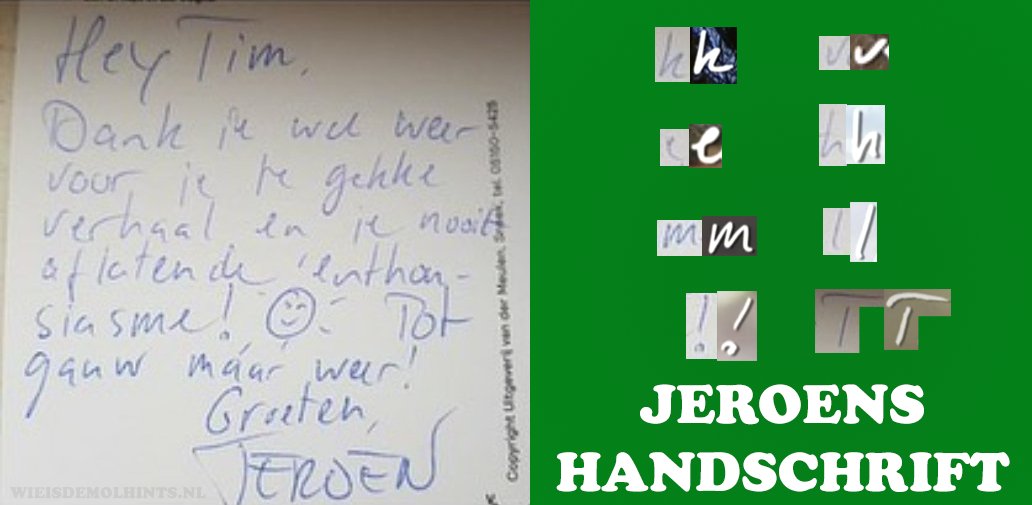 Hey Tim,
Dank je wel weer
voor je te gekke
verhaal en je nooit
aflatende enthou-
siasme! Tot
gauw máár weer!
Groeten,
JEROEN
Copyright Uitgeverij van der Meulen, Sneek, tel. 05150-5425
WIEISDEMOLHINTS.NL
h h
v v
e e
h h
m m
l l
! !
T T
JEROENS
HANDSCHRIFT